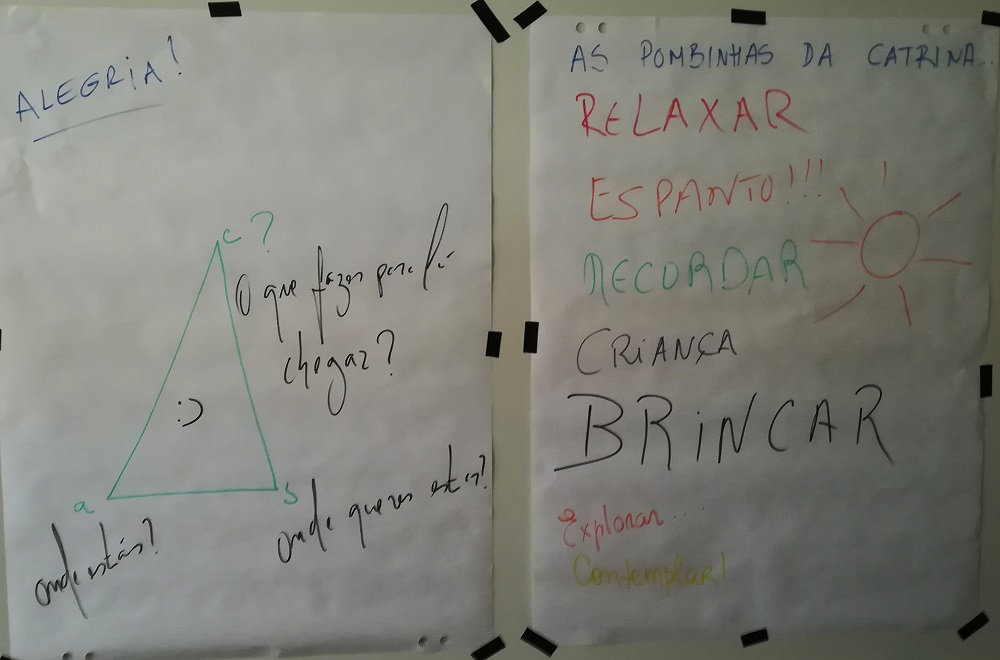 ALEGRIA!
c?
O que fazer para lá
chegar?
:)
a
b
onde estás?
onde queres estar?
AS POMBINHAS DA CATRINA...
RELAXAR
ESPANTO!!!
RECORDAR
CRIANÇA
BRINCAR
Explorar...
Contemplar!